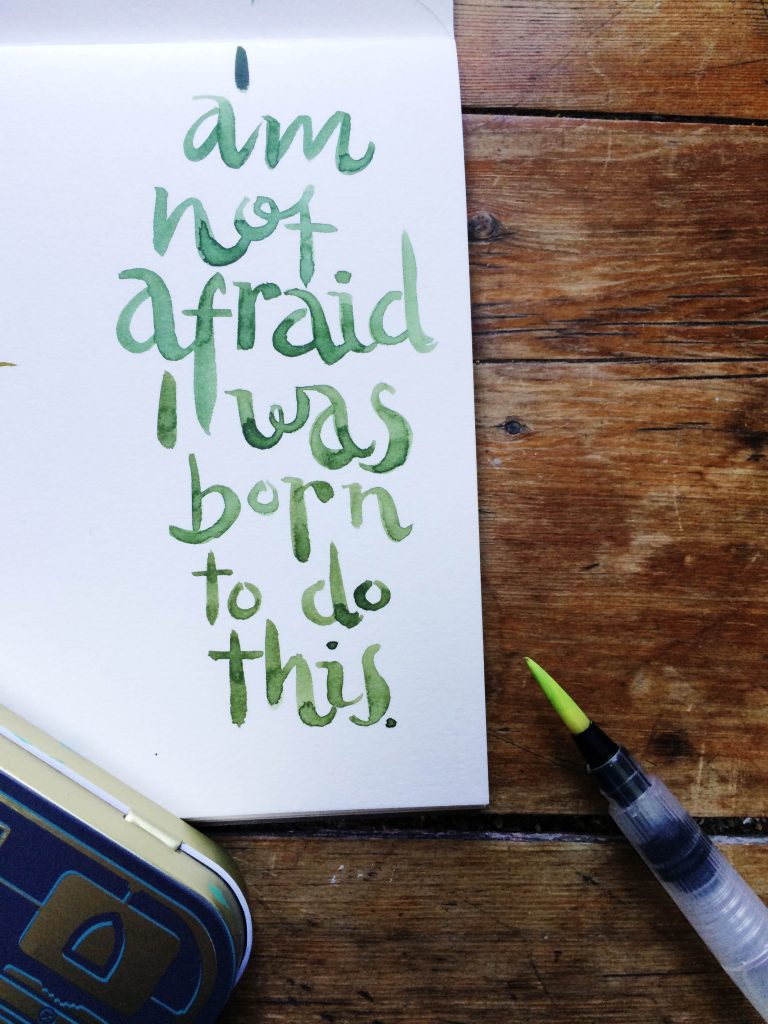 i
am
not
afraid
I was
born
to do
this.